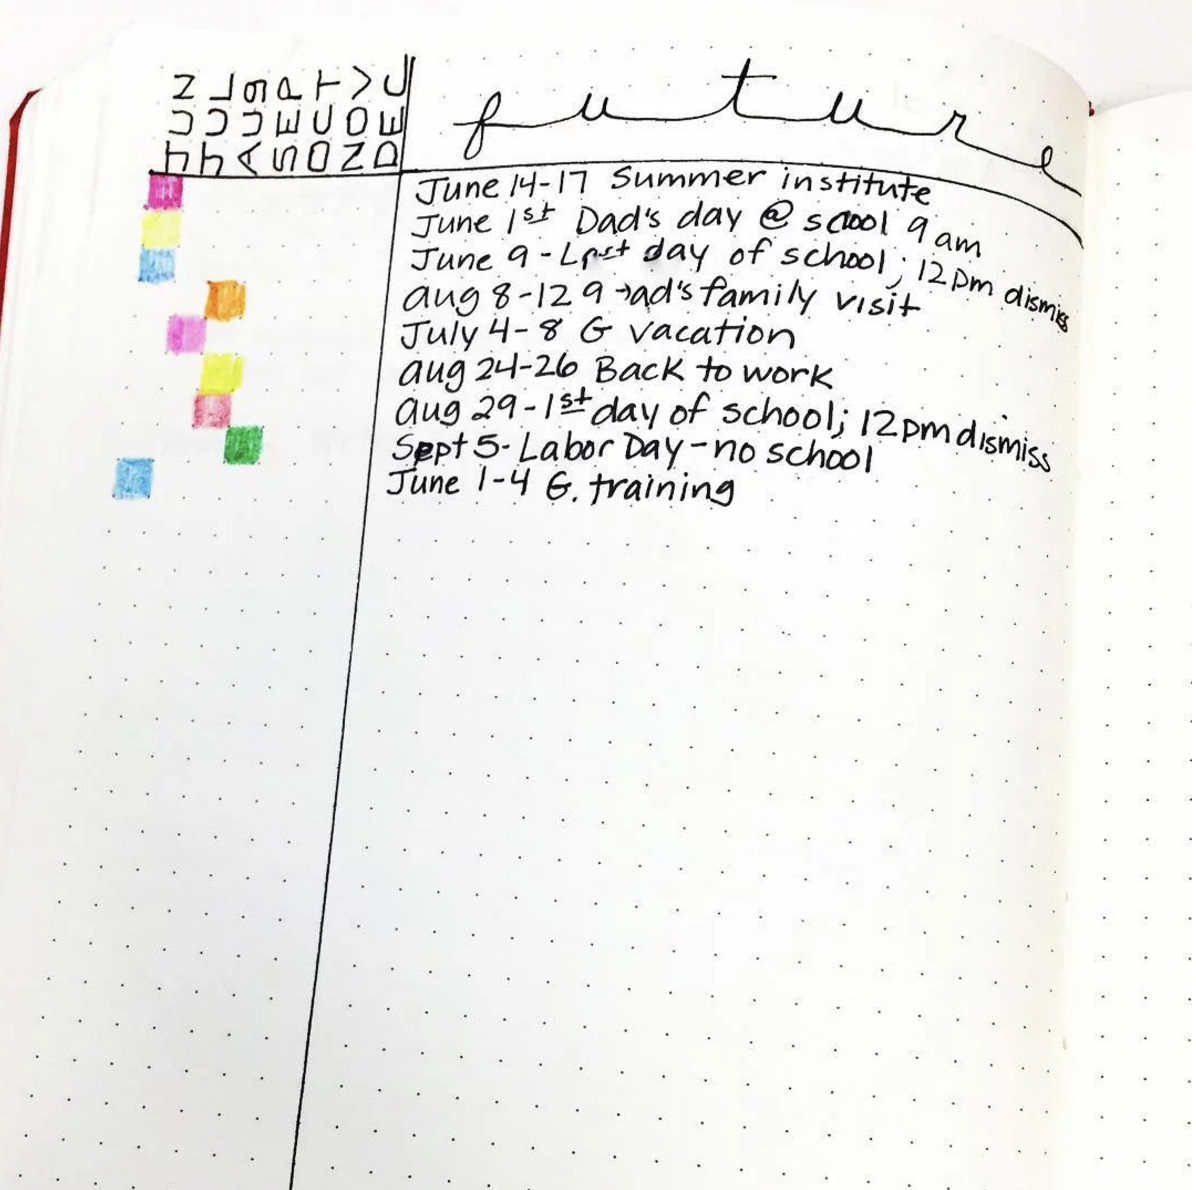 JUN
JUL
AUG
SEPT
OCT
NOV
DEC
future
June 14-17 Summer institute
June 1st Dad's day @ school 9am
June 9 - Last day of school; 12pm dismiss
aug 8-12 family visit
July 4-8 G vacation
aug 24-26 Back to work
aug 29-1st day of school; 12pm dismiss
Sept 5- Labor Day - no school
June 1-4 G. training